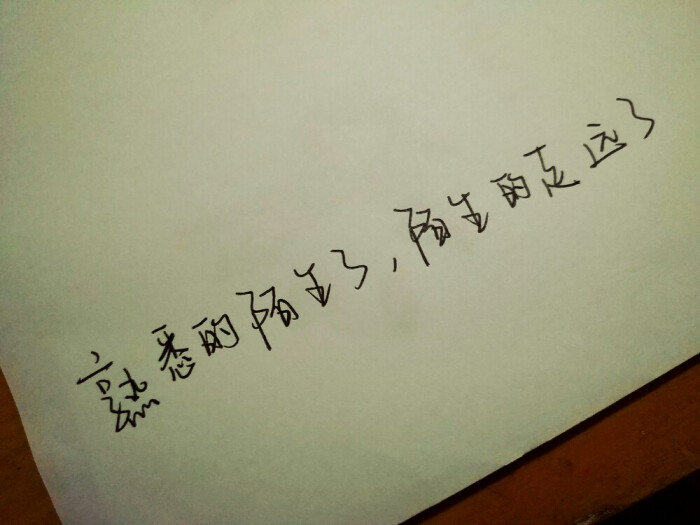 熟悉的陌生了，陌生的走远了